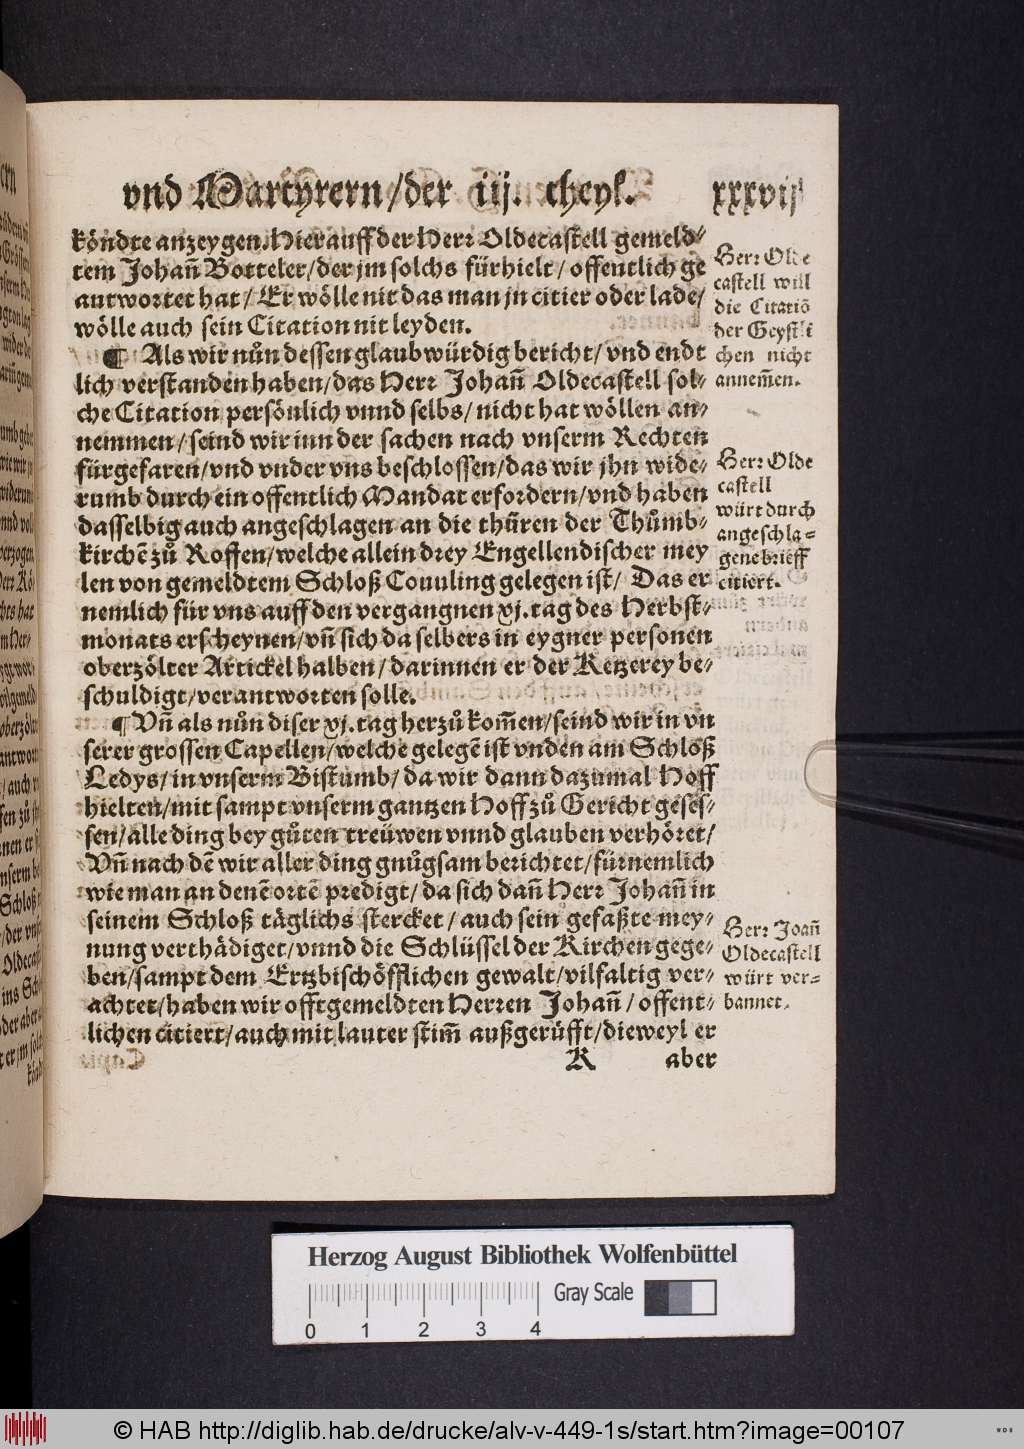 vnd Martyrern / der iij. theyl. xxxvij
köndte anzeygen. Hierauff der Herr Oldecastell gemeld-
tem Johañ Botteler / der jm solchs fürhielt / offentlich ge
antwortet hat / Er wölle nit das man jn citier oder lade /
wölle auch sein Citation nit leyden.
¶ Als wir nůn dessen glaubwürdig bericht / vnd endt
lich verstanden haben / das Herr Johañ Oldecastell sol-
che Citation persönlich vnnd selbs / nicht hat wöllen an-
nemmen / seind wir inn der sachen nach vnserm Rechten
fürgefaren / vnd vnder vns beschlossen / das wir jhn wide-
rumb durch ein offentlich Mandat erfordern / vnd haben
dasselbig auch angeschlagen an die thüren der Thůmb-
kirchē zů Roffen / welche allein drey Engellendischer mey
len von gemeldtem Schloß Couuling gelegen ist / Das er
nemlich für vns auff den vergangnen xj. tag des Herbst-
monats erscheynen / vñ sich da selbers in eygner personen
oberzölter Artickel halben / darinnen er der Ketzerey be-
schuldigt / verantworten solle.
¶ Vñ als nůn diser xj. tag herzů kom̃en / seind wir in vn
serer grossen Capellen / welche gelegē ist vnden am Schloß
Ledys / in vnserm Bistumb / da wir dann dazumal Hoff
hielten / mit sampt vnserm gantzen Hoff zů Gericht geses-
sen / alle ding bey gůten treüwen vnnd glauben verhöret /
Vñ nach dē wir aller ding gnůgsam berichtet / fürnemlich
wie man an denē ortē predigt / da sich dañ Herr Johañ in
seinem Schloß täglichs stercket / auch sein gefaßte mey-
nung verthädiget / vnnd die Schlüssel der Kirchen gege-
ben / sampt dem Ertzbischöfflichen gewalt / vilfaltig ver-
achtet / haben wir offtgemeldten Herren Johañ / offent-
lichen citiert / auch mit lauter stim̃ außgerüfft / dieweyl er
K aber
Herr Olde
castell will
die Citatiō
der Geystli
chen nicht
annem̃en.
Herr Olde
castell
würt durch
angeschla-
gene brieff
citiert.
Herr Joañ
Oldecastell
würt ver-
bannet.
Herzog August Bibliothek Wolfenbüttel
Gray Scale
0 1 2 3 4
© HAB http://diglib.hab.de/drucke/alv-v-449-1s/start.htm?image=00107